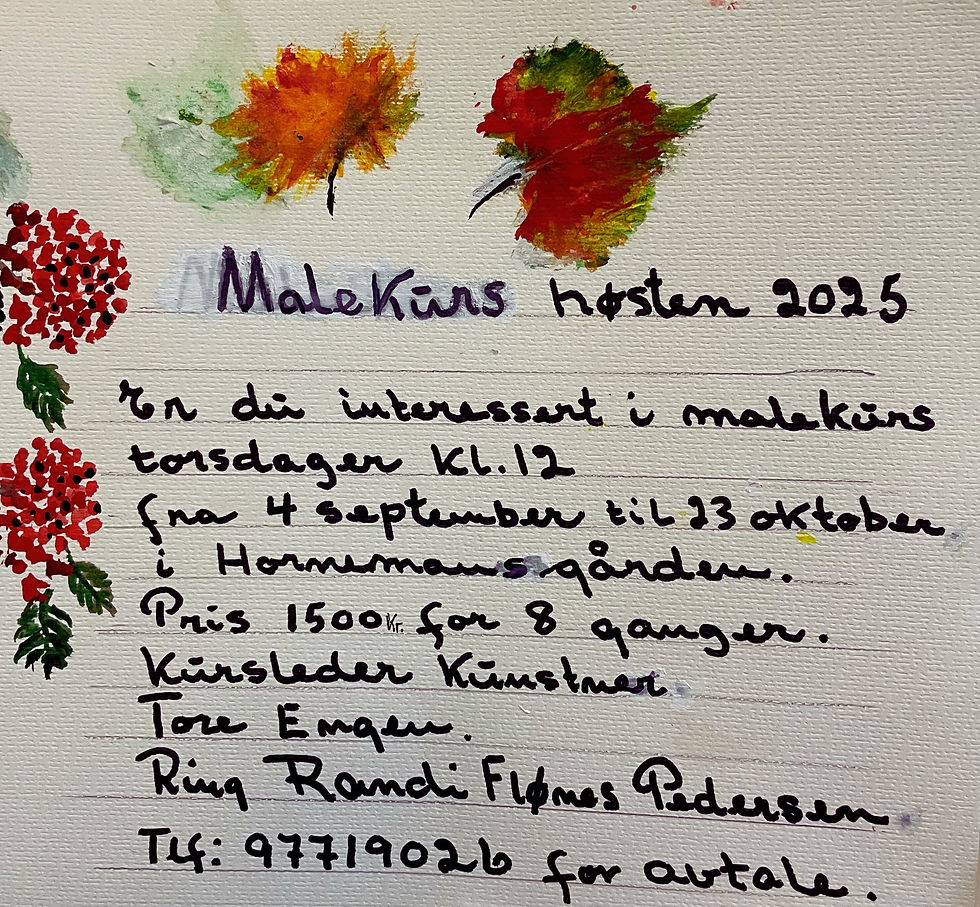 Malekurs høsten 2025
Er du interessert i malekurs
torsdager kl. 12
fra 4 september til 23 oktober
i Hornemansgården.
Pris 1500 kr. for 8 ganger.
Kursleder Kunstner
Tore Engen.
Ring Randi Flønes Pedersen
Tlf: 97719026 for avtale.